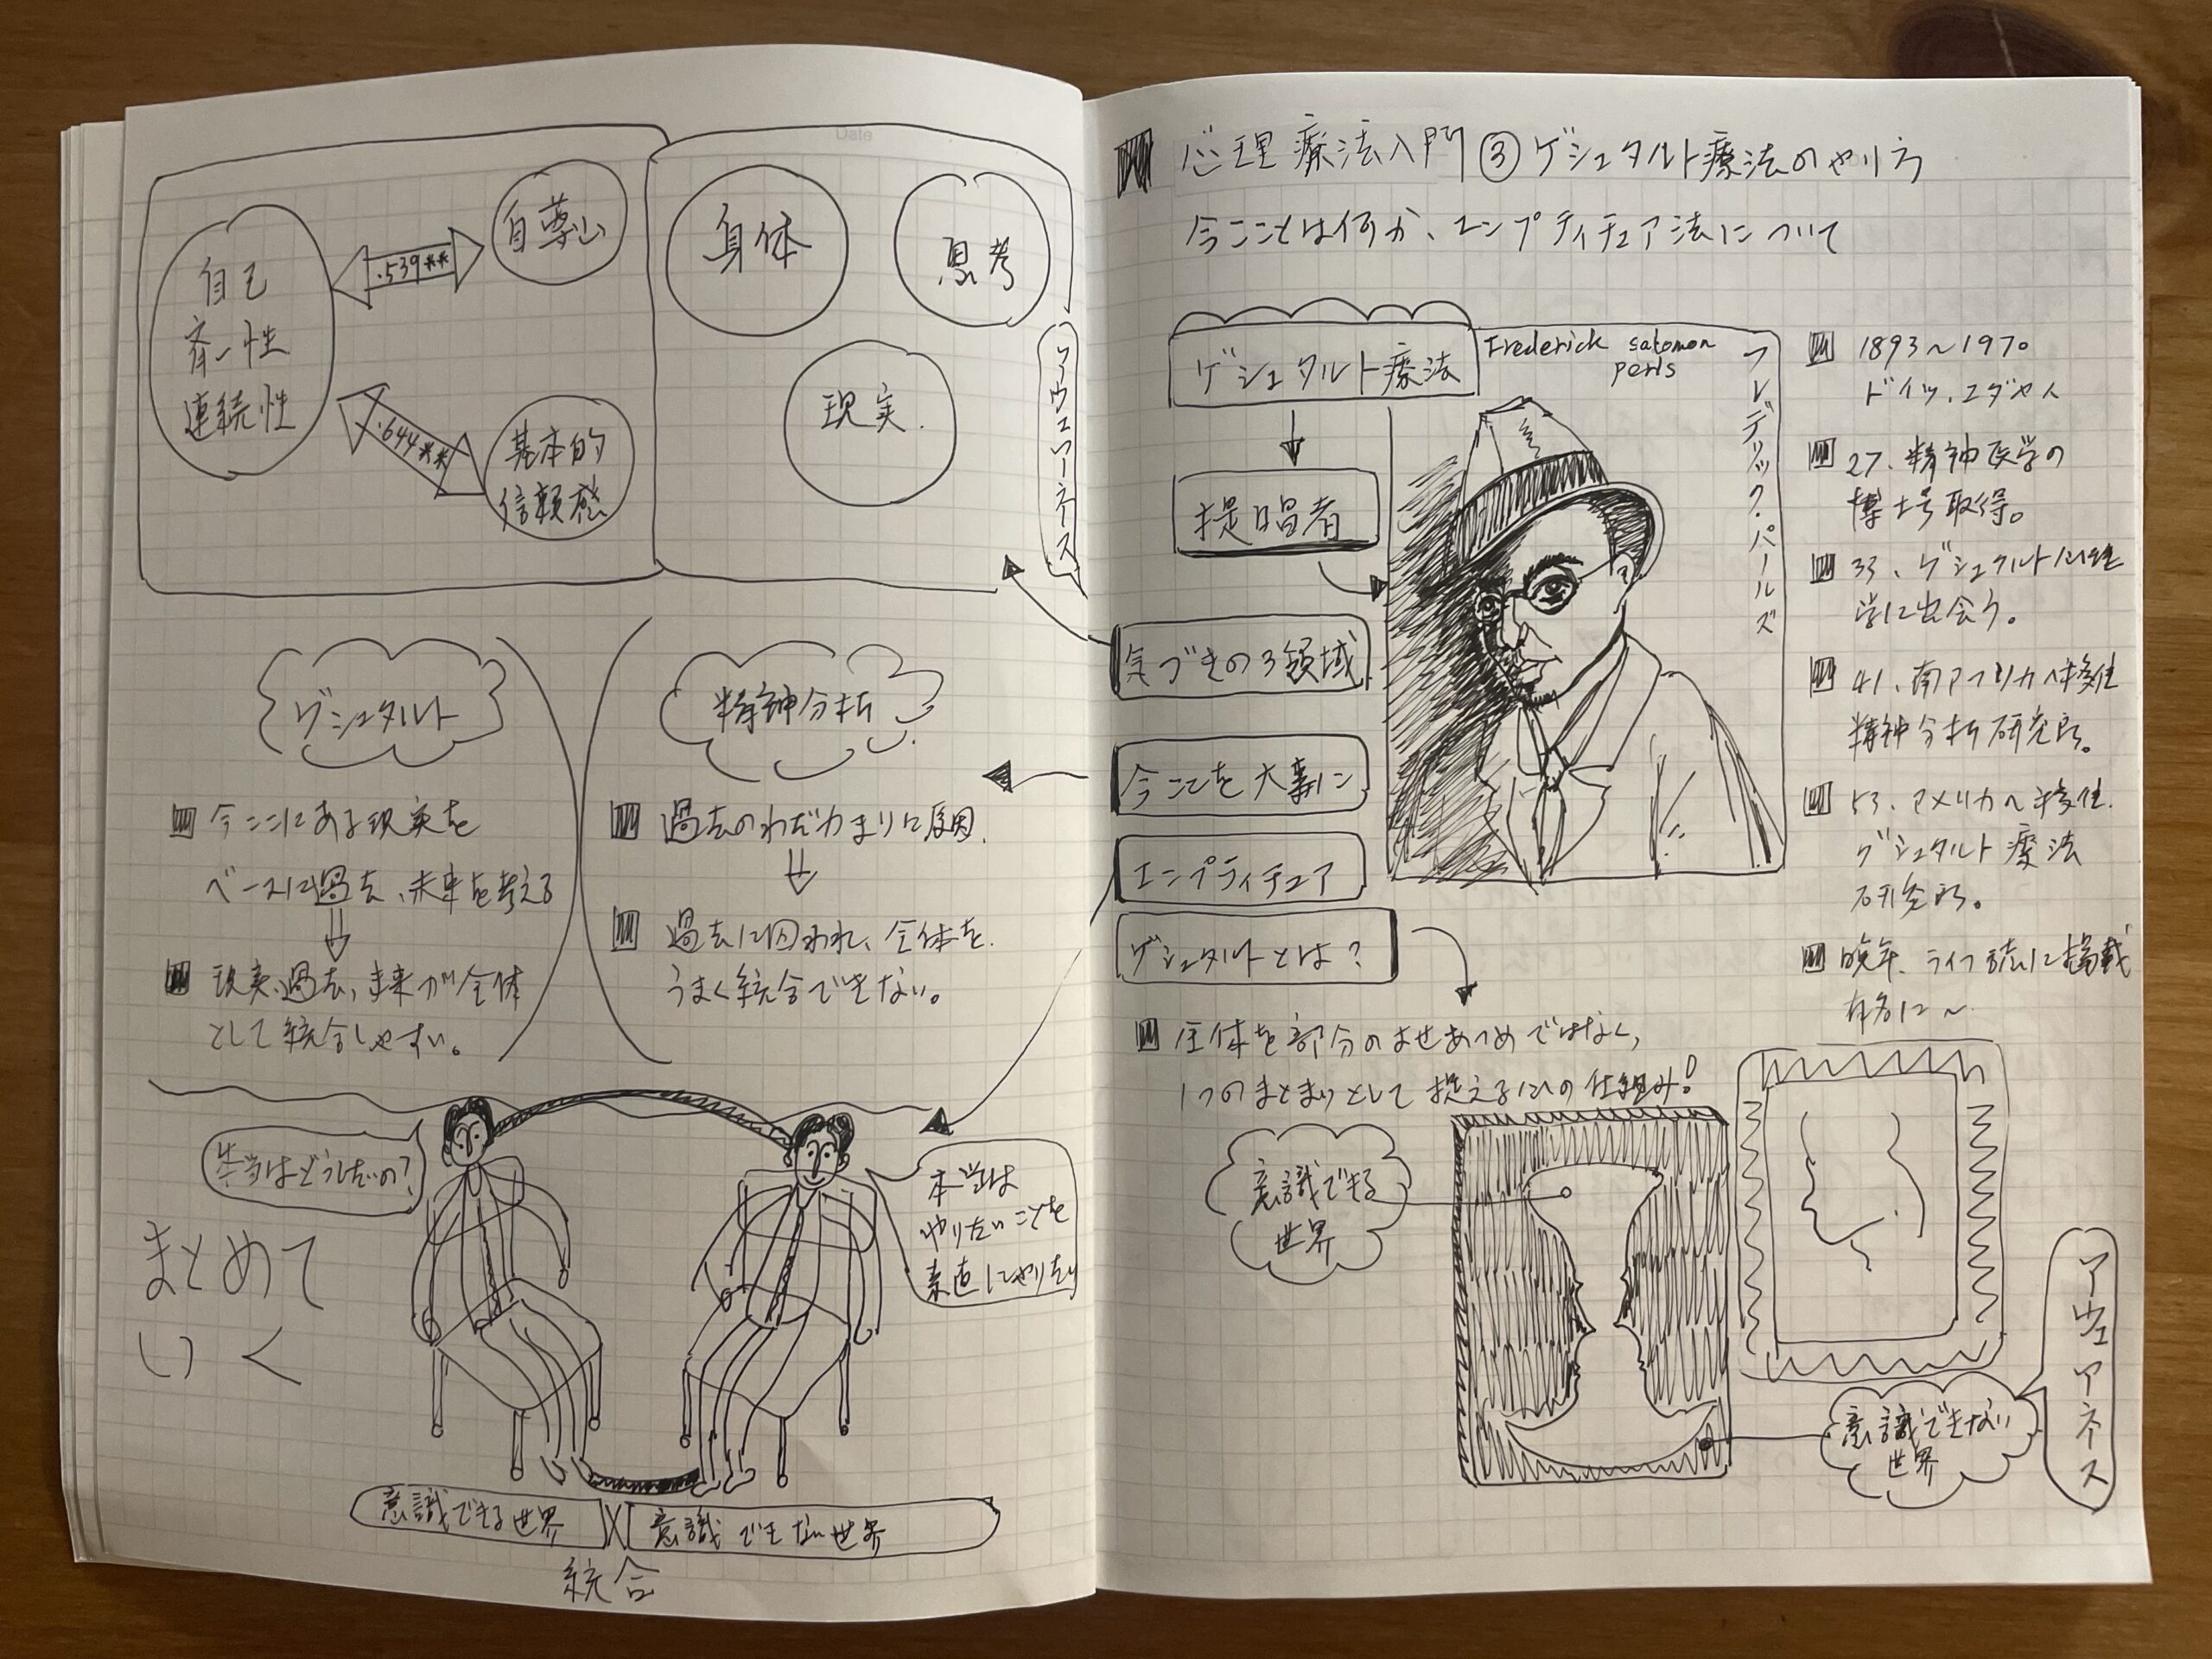 Date
自己
斉一性
連続性
.539**
自尊心
.644**
基本的
信頼感
身体
思考
現実
アウェアーネス
ゲシュタルト
今ここにある現実を
ベースに過去、未来を考える
現実、過去、未来が全体
として統合しやすい。
精神分析
過去のわだかまりに原因
過去に囚われ、全体を
うまく統合できない。
本当はどうしたいの?
本当は
やりたいことを
素直にやりたい
まとめて
いく
意識できる世界
意識できない世界
統合
心理療法入門③ゲシュタルト療法のやり方
今ここは何か、エンプティチェア法について
ゲシュタルト療法
提唱者
Frederick salomon
perls
フレデリック・パールズ
1893~1970
ドイツ、ユダヤ人
27、精神医学の
博士号取得。
33、ゲシュタルト心理
学に出会う。
41、南アフリカへ移住
精神分析研究所。
53、アメリカへ移住
ゲシュタルト療法
研究所。
晩年、ライフ誌に掲載
有名に~
気づきの3領域
今ここを大事に
エンプティチェア
ゲシュタルトとは?
全体を部分のよせあつめではなく、
1つのまとまりとして捉える心の仕組み!
意識できる
世界
意識できない
世界
アウェアネス